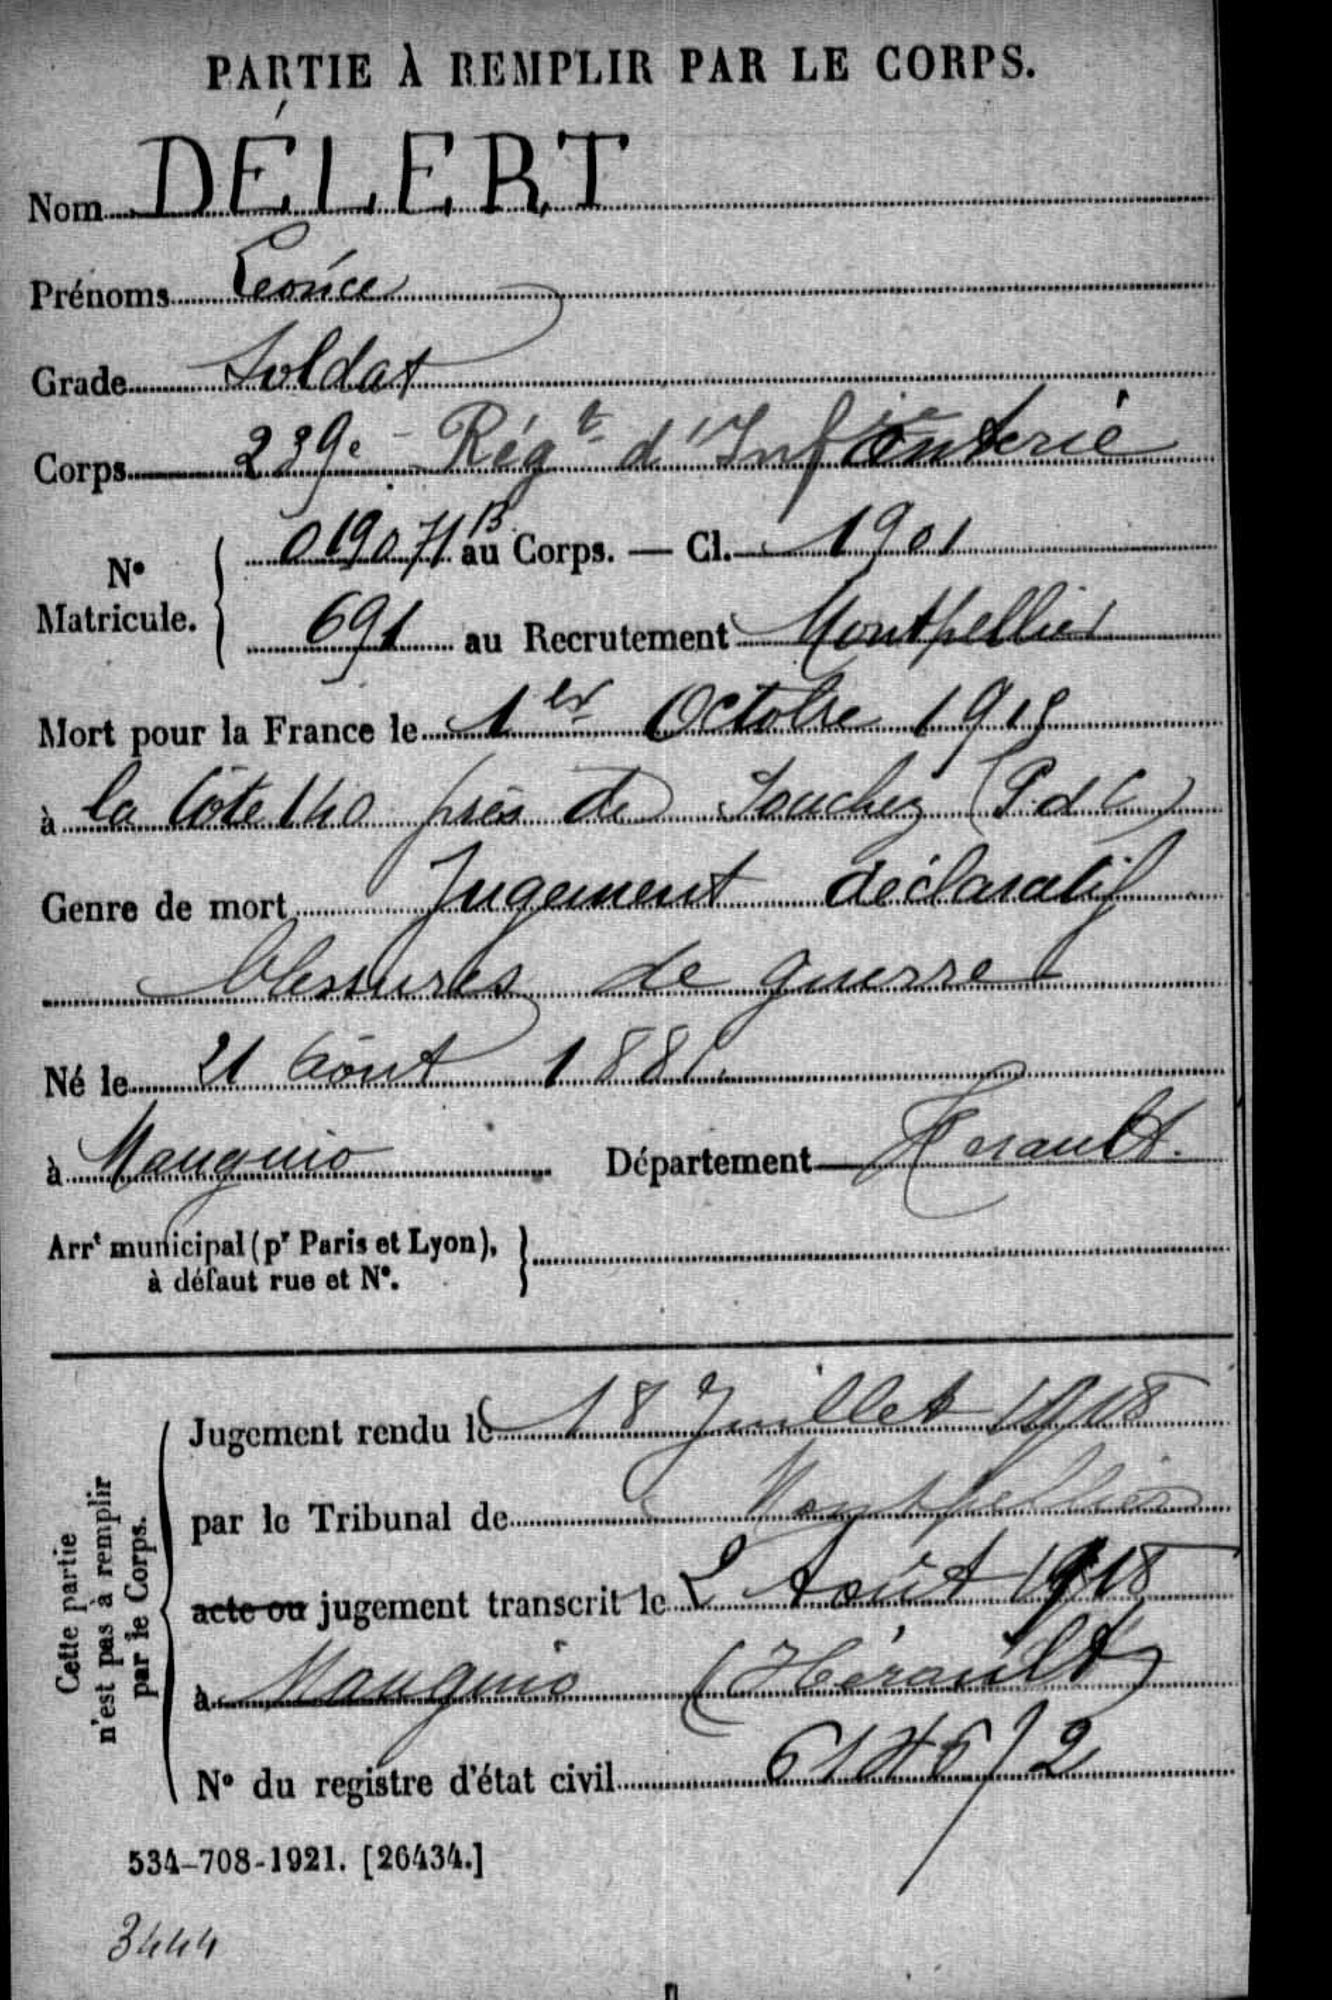 PARTIE À REMPLIR PAR LE CORPS.
Nom DÉLERT
Prénoms Léonce
Grade Soldat
Corps 239e Régt d'Infanterie
No Matricule. 019071 B au Corps. — Cl. 1901
691 au Recrutement Montpellier
Mort pour la France le 1er Octobre 1915
à la Côte 140 près de Souchez (P. d C)
Genre de mort Jugement déclaratif
blessures de guerre
Né le 21 Août 1881
à Mauguio Département Hérault.
Arrt municipal (pr Paris et Lyon),
à défaut rue et No.
Cette partie
n'est pas à remplir
par le Corps.
Jugement rendu le 18 Juillet 1918
par le Tribunal de Montpellier
acte ou jugement transcrit le 2 Août 1918
à Mauguio (Hérault)
No du registre d'état civil
534-708-1921. [26434.]
3444